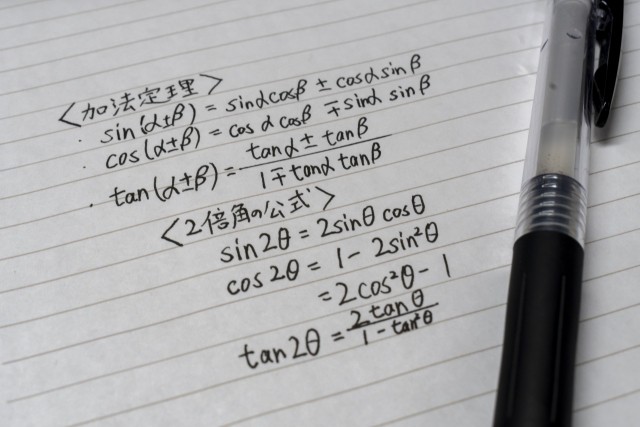 <加法定理>
・sin(α±β) = sinαcosβ ± cosαsinβ
・cos(α±β) = cosαcosβ ∓ sinα sinβ
・tan(α±β) = (tanα ± tanβ)/(1 ∓ tanα tanβ)
<2倍角の公式>
sin2θ = 2sinθcosθ
cos2θ = 1 - 2sin²θ
= 2cos²θ - 1
tan2θ = 2tanθ/(1 - tan²θ)